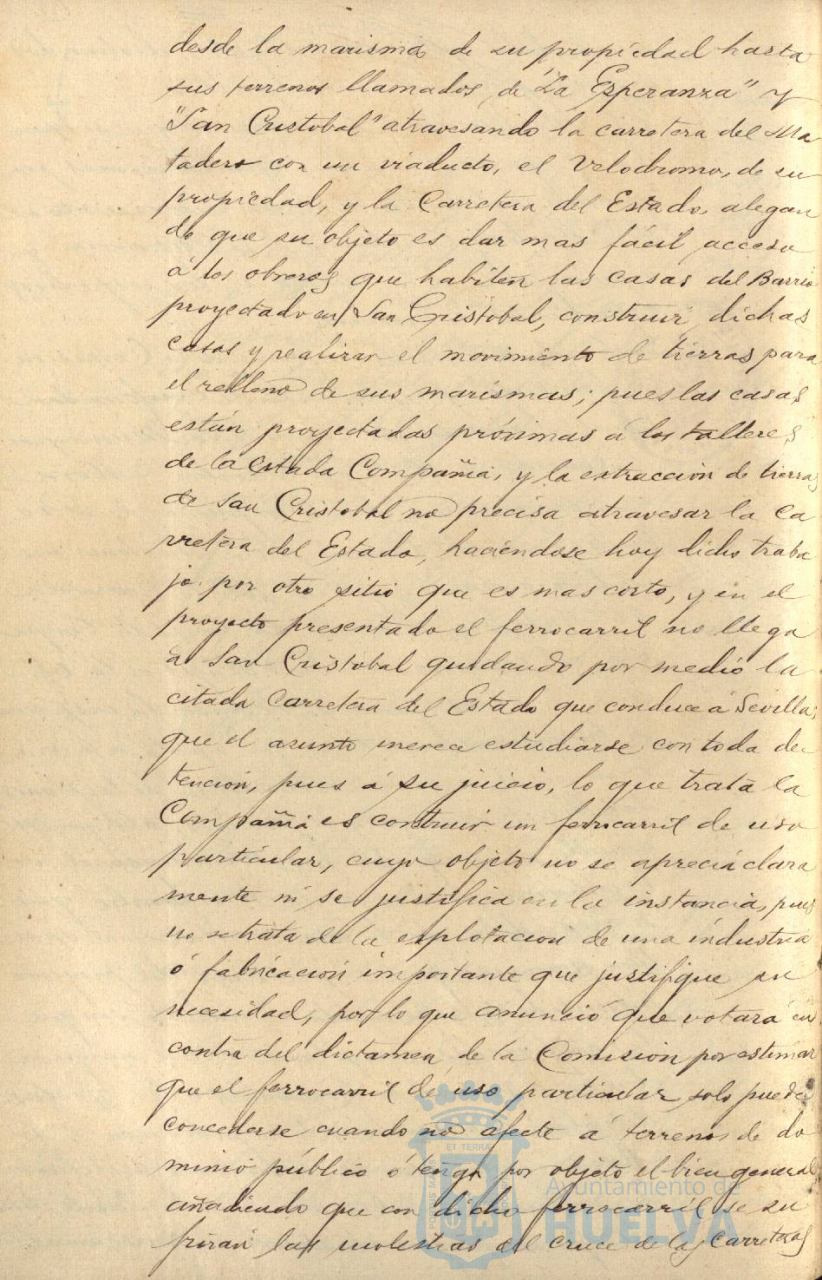 desde la marisma de su propiedad hasta
sus terrenos llamados de "La Esperanza" y
"San Cristobal" atravesando la carretera del Ma
tadero con un viaducto, el Velodromo, de su
propiedad, y la Carretera del Estado, alegan
do que su objeto es dar mas fácil acceso
á los obreros que habiten las casas del Barrio
proyectado en San Cristobal, construir dichas
casas y realizar el movimiento de tierras para
el relleno de sus marismas; pues las casas
están proyectadas próximas a los talleres
de la citada Compañia, y la extracción de tierras
de San Cristobal no precisa atravesar la ca
rretera del Estado, haciendose hoy dicho traba
jo por otro sitio que es mas corto, y en el
proyecto presentado el ferrocarril no llega
a San Cristobal quedando por medio la
citada Carretera del Estado que conduce á Sevilla;
que el asunto merece estudiarse con toda de
tención, pues á su juicio, lo que trata la
Compañia es construir un ferrocarril de uso
particular, cuyo objeto no se aprecia clara
mente ni se justifica en la instancia, pues
no se trata de la explotacion de una industria
ó fabricación importante que justifique su
necesidad, por lo que anunció que votará en
contra del dictamen de la Comisión por estimar
que el ferrocarril de uso particular solo puede
concederse cuando no afecte á terrenos de do
minio público ó tenga por objeto el bien general
añadiendo que con dicho ferrocarril se su
frirán las molestias del cruce de las Carreteras
ET TERRA
Ayuntamiento de
HUELVA